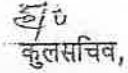 कुलसचिव,